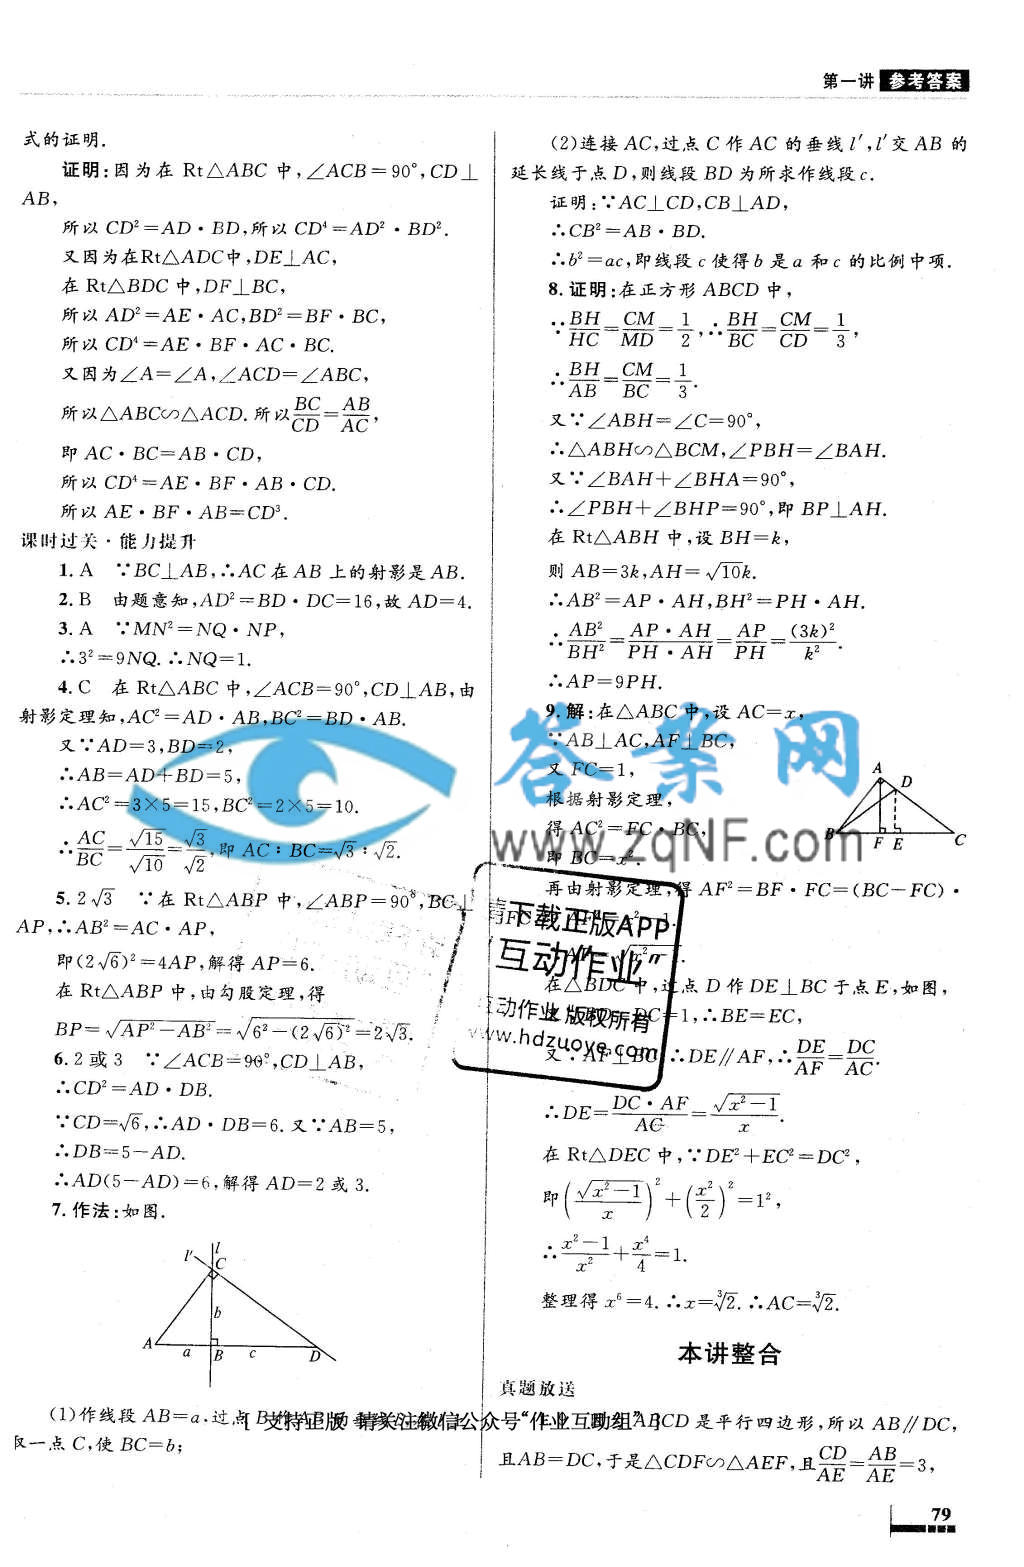 第一讲 参考答案
式的证明.
证明:因为在 Rt△ABC 中,∠ACB=90°,CD⊥
AB,
所以 CD²=AD·BD,所以 CD⁴=AD²·BD².
又因为在Rt△ADC中,DE⊥AC,
在 Rt△BDC 中,DF⊥BC,
所以 AD²=AE·AC,BD²=BF·BC,
所以 CD⁴=AE·BF·AC·BC.
又因为∠A=∠A,∠ACD=∠ABC,
所以△ABC∽△ACD.所以BC/CD=AB/AC,
即 AC·BC=AB·CD,
所以 CD⁴=AE·BF·AB·CD.
所以 AE·BF·AB=CD³.
课时过关·能力提升
1. A ∵BC⊥AB,∴AC 在 AB 上的射影是 AB.
2. B 由题意知,AD²=BD·DC=16,故 AD=4.
3. A ∵MN²=NQ·NP,
∴3²=9NQ.∴NQ=1.
4. C 在 Rt△ABC 中,∠ACB=90°,CD⊥AB,由
射影定理知,AC²=AD·AB,BC²=BD·AB.
又∵AD=3,BD=2,
∴AB=AD+BD=5,
∴AC²=3×5=15,BC²=2×5=10.
∴AC/BC=√15/√10=√3/√2,即 AC∶BC=√3∶√2.
5. 2√3 ∵在 Rt△ABP 中,∠ABP=90°,BC⊥
AP,∴AB²=AC·AP,
即(2√6)²=4AP,解得 AP=6.
在 Rt△ABP 中,由勾股定理,得
BP=√AP²−AB²=√6²−(2√6)²=2√3.
6. 2 或 3 ∵∠ACB=90°,CD⊥AB,
∴CD²=AD·DB.
∵CD=√6,∴AD·DB=6.又∵AB=5,
∴DB=5−AD.
∴AD(5−AD)=6,解得 AD=2 或 3.
7. 作法:如图.
l′ l C
b
A a B c D
(1)作线段 AB=a,过点 B 作
一点 C,使 BC=b;
(2)连接 AC,过点 C 作 AC 的垂线 l′,l′交 AB 的
延长线于点 D,则线段 BD 为所求作线段c.
证明:∵AC⊥CD,CB⊥AD,
∴CB²=AB·BD.
∴b²=ac,即线段 c 使得 b 是 a 和 c 的比例中项.
8. 证明:在正方形 ABCD 中,
∵BH/HC=CM/MD=1/2,∴BH/BC=CM/CD=1/3,
∴BH/AB=CM/BC=1/3.
又∵∠ABH=∠C=90°,
∴△ABH∽△BCM,∠PBH=∠BAH.
又∵∠BAH+∠BHA=90°,
∴∠PBH+∠BHP=90°,即 BP⊥AH.
在 Rt△ABH 中,设 BH=k,
则 AB=3k,AH=√10k.
∴AB²=AP·AH,BH²=PH·AH.
∴AB²/BH²=AP·AH/PH·AH=AP/PH=(3k)²/k².
∴AP=9PH.
9. 解:在△ABC 中,设 AC=x,
∵AB⊥AC,AF⊥BC,
又 FC=1,
根据射影定理,
得 AC²=FC·BC,
即 BC=x².
A D
B F E C
再由射影定理,得 AF²=BF·FC=(BC−FC)·
FC
在△BDC 中,过点 D 作 DE⊥BC 于点 E,如图,
DC=1,∴BE=EC,
又∵AF⊥BC,∴DE∥AF,∴DE/AF=DC/AC.
∴DE=DC·AF/AC=√x²−1/x.
在 Rt△DEC 中,∵DE²+EC²=DC²,
即(√x²−1/x)²+(x²/2)²=1²,
∴x²−1/x²+x⁴/4=1.
整理得 x⁶=4.∴x=∛2.∴AC=∛2.
本讲整合
真题放送
ABCD 是平行四边形,所以 AB∥DC,
且AB=DC,于是△CDF∽△AEF,且CD/AE=AB/AE=3,
79
答案网
www.zqNF.com
请下载正版APP
互动作业"
互动作业 版权所有
www.hdzuoye.com
[ 支持正版 请关注微信公众号"作业互助组" ]